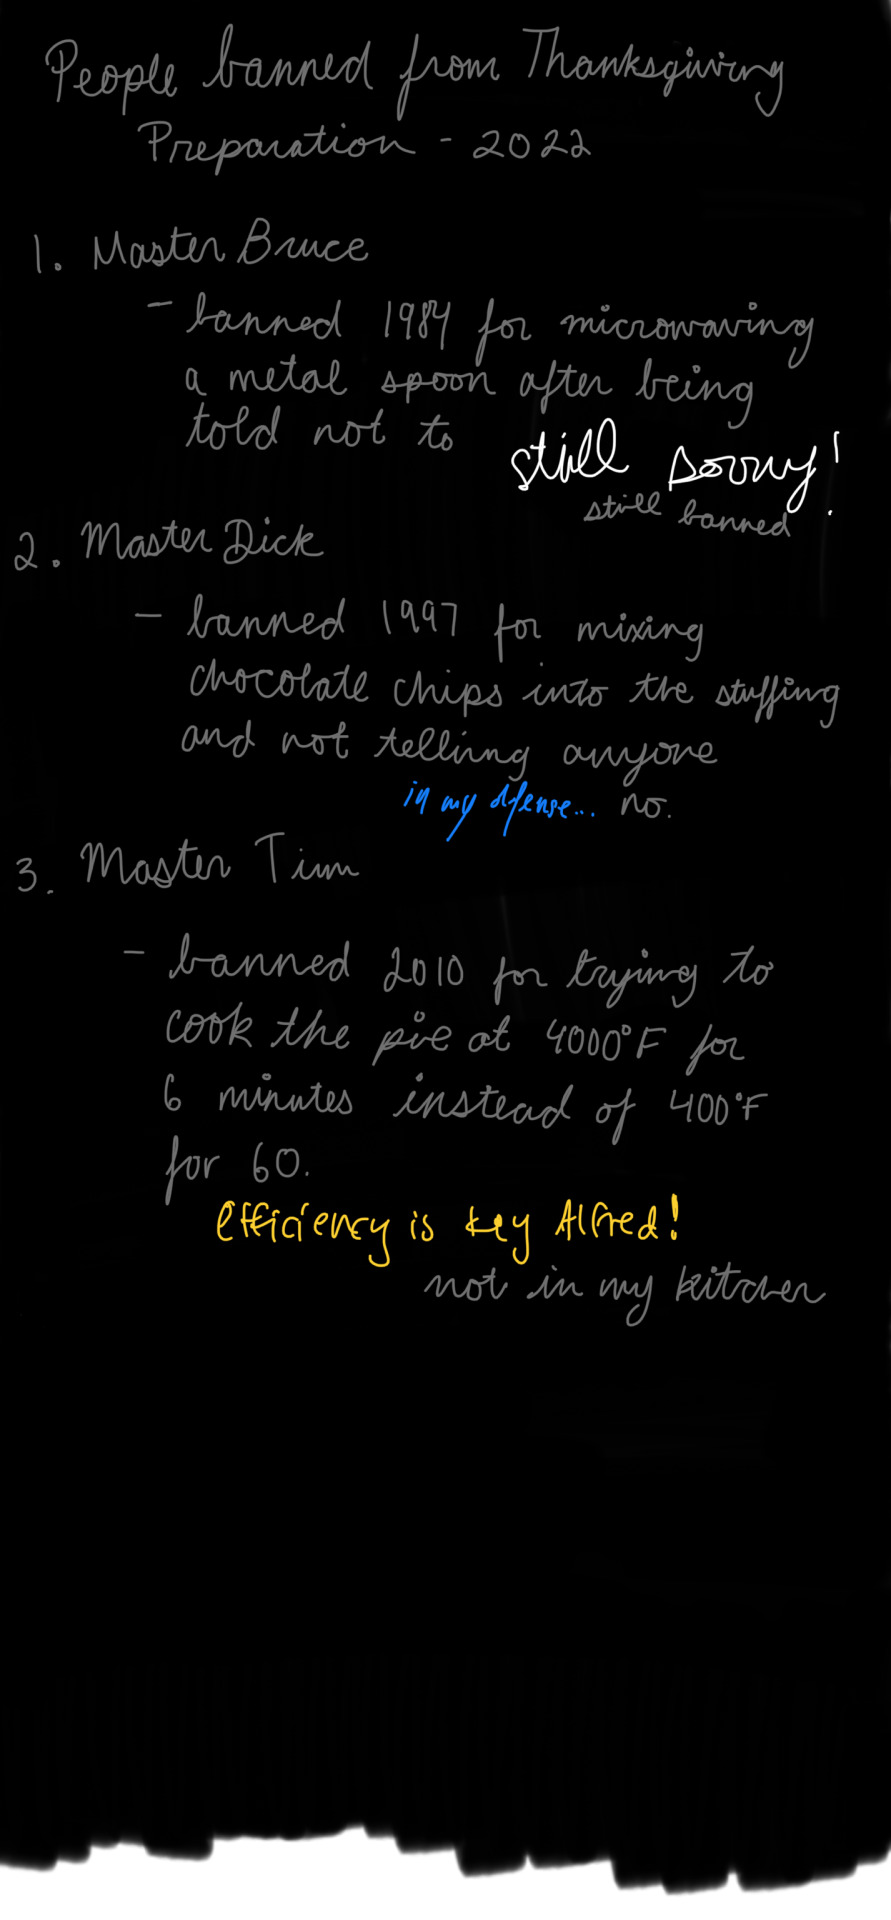 People banned from Thanksgiving
Preparation - 2022
1. Master Bruce
- banned 1984 for microwaving
a metal spoon after being
told not to
still sorry!
still banned
2. Master Dick
- banned 1997 for mixing
chocolate chips into the stuffing
and not telling anyone
in my dfense... no.
3. Master Tim
- banned 2010 for trying to
cook the pie at 4000°F for
6 minutes instead of 400°F
for 60.
efficiency is key Alfred!
not in my kitchen